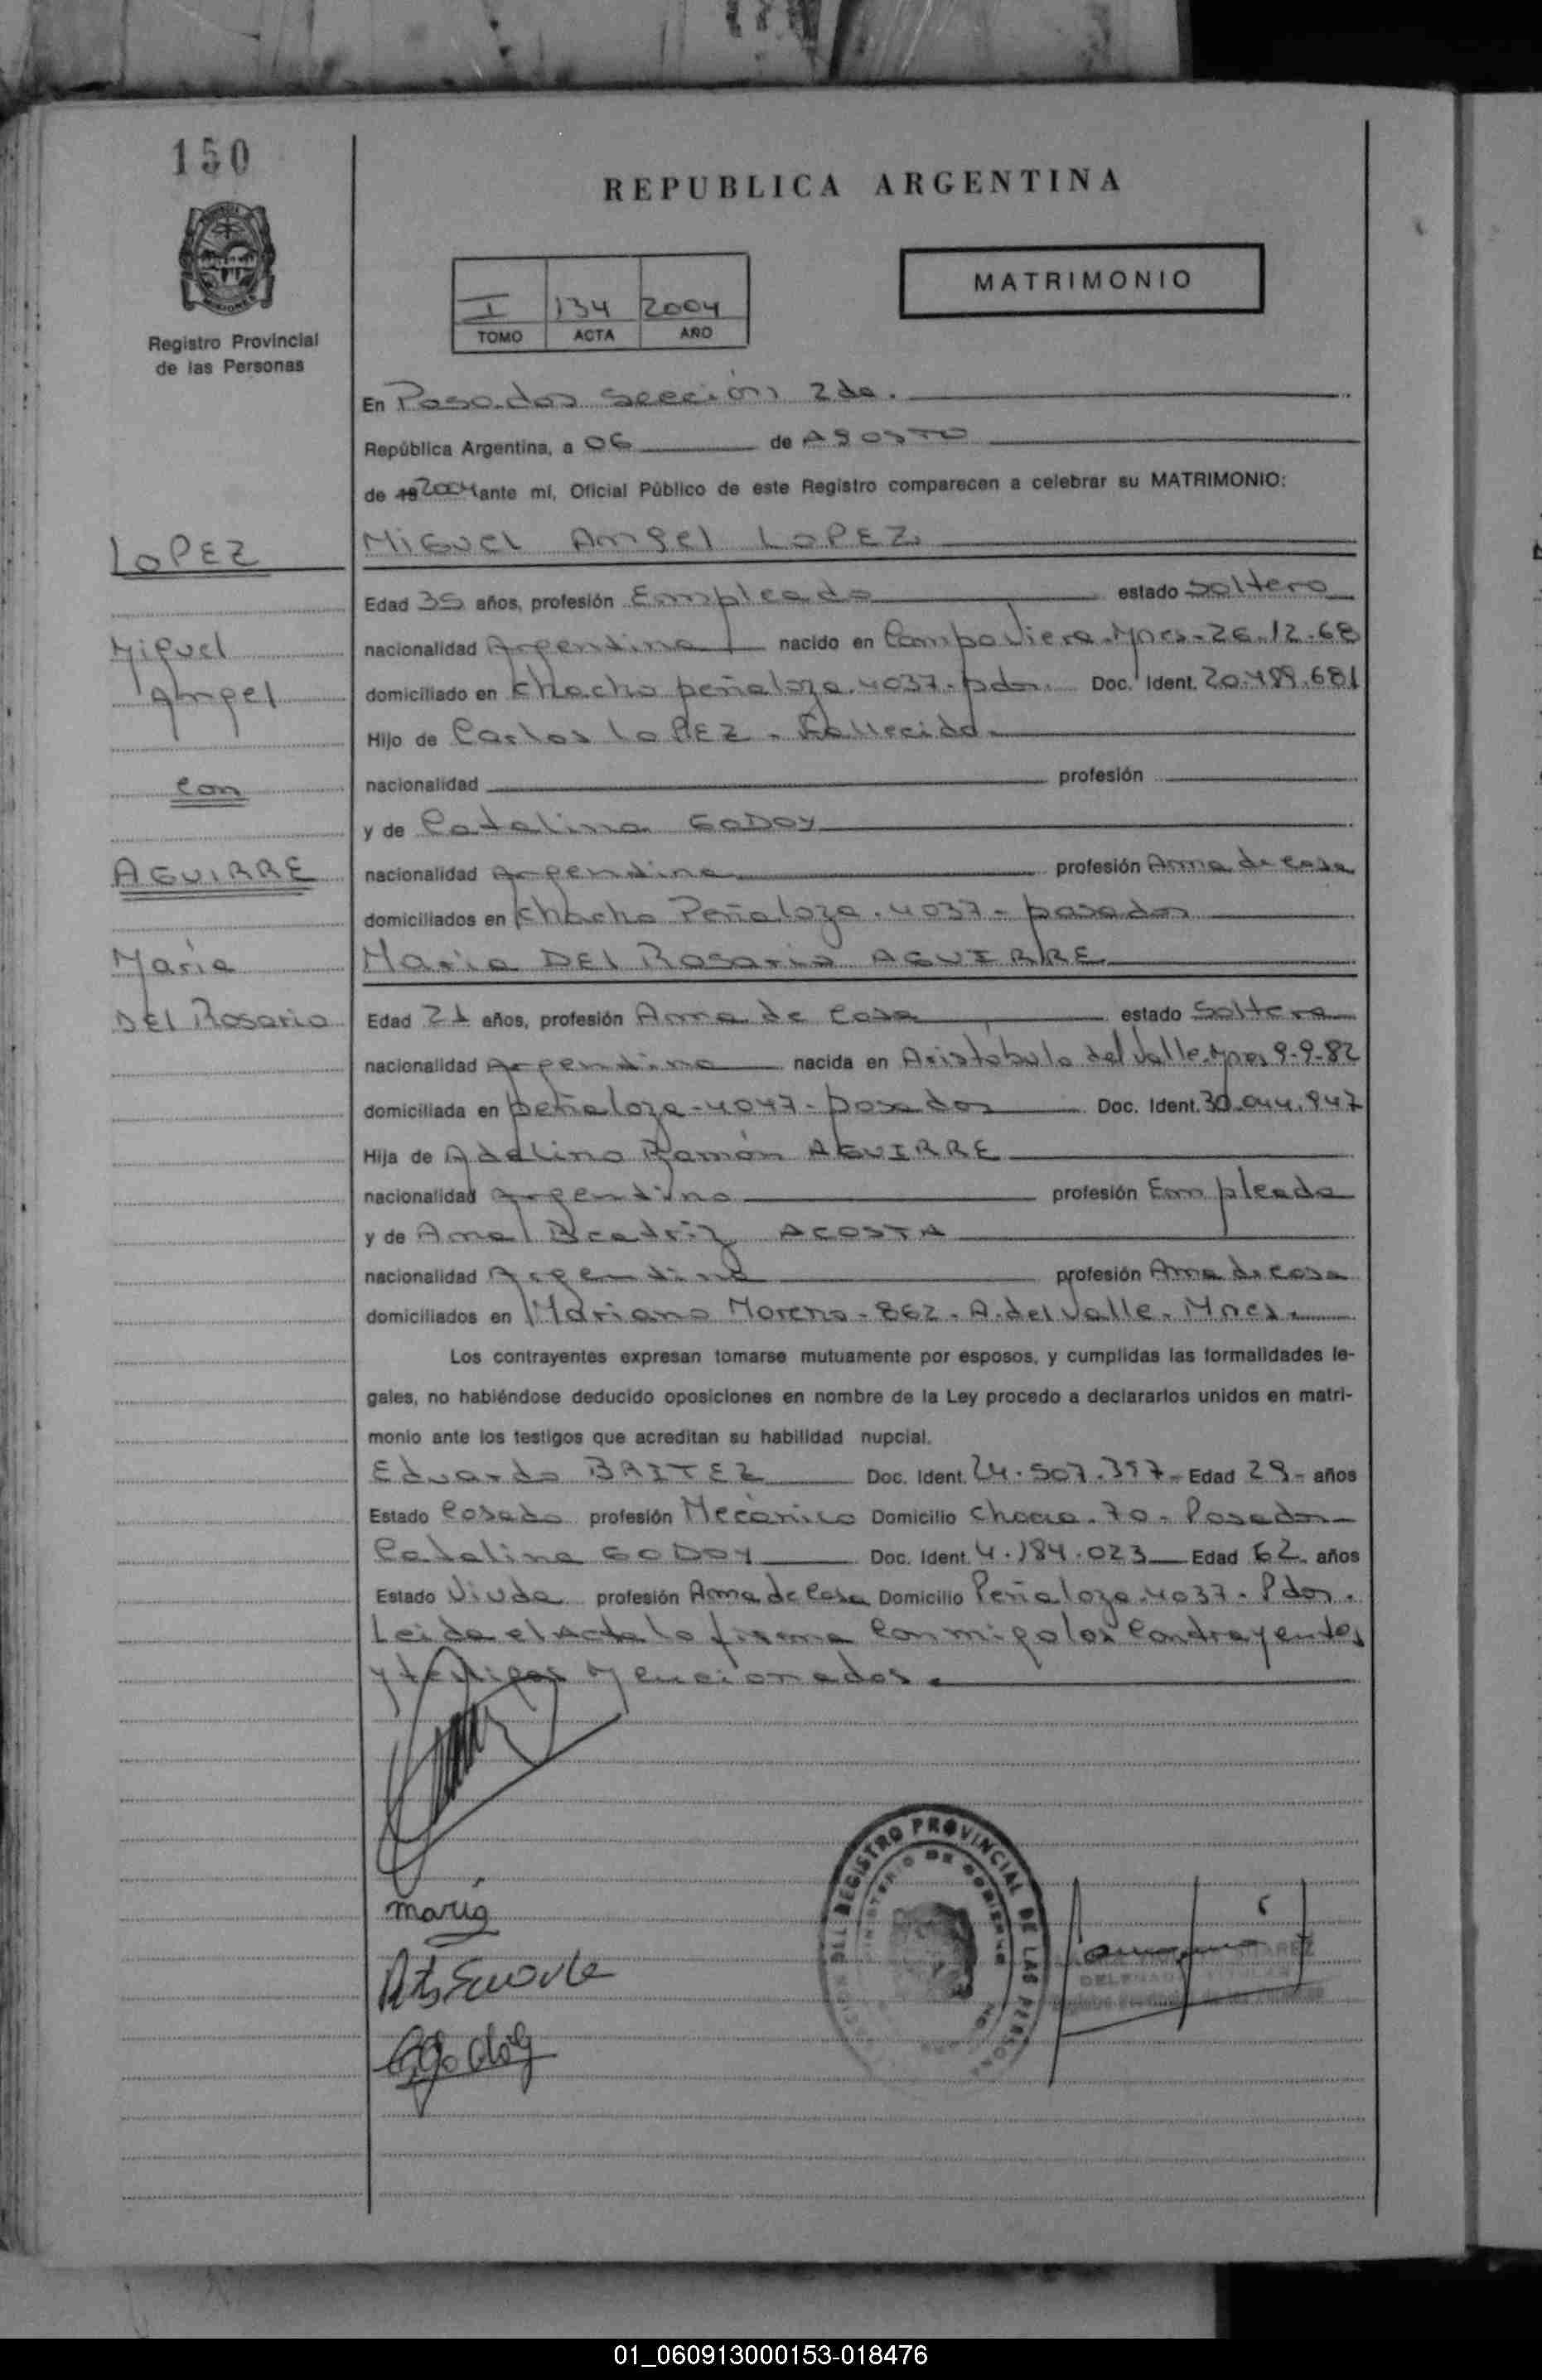 150
REPUBLICA ARGENTINA
MATRIMONIO
I 134 2004
TOMO ACTA AÑO
Registro Provincial
de las Personas
En Posadas Sección 2da.
República Argentina, a 06 de AgOSTO
de 19 2004 ante mí, Oficial Público de este Registro comparecen a celebrar su MATRIMONIO:
LOPEZ
Miguel
Angel
con
AGUIRRE
María
DEl Rosario
MIGUEL Angel LOPEZ
Edad 35 años, profesión Empleado estado Soltero
nacionalidad Argentina nacido en Campo Viera-Mnes-26.12.68
domiciliado en Chacho peñaloza.4037-pdas. Doc. Ident. 20.489.681
Hijo de Carlos LoPEZ - Fallecido
nacionalidad profesión
y de Catalina GODOY
nacionalidad Argentina profesión Ama de casa
domiciliados en Chacho Peñaloza.4037-posadas
María DEl Rosario AGUIRRE
Edad 21 años, profesión Ama de Casa estado Soltera
nacionalidad Argentina nacida en Aristóbulo del Valle-Mnes 9-9-82
domiciliada en peñaloza-4047-posadas Doc. Ident. 30.044.947
Hija de Adelino Ramón AGUIRRE
nacionalidad Argentino profesión Empleado
y de Beatriz ACOSTA
nacionalidad Argentina profesión Ama de casa
domiciliados en Mariano Moreno-862-A.del Valle-Mnes.
Los contrayentes expresan tomarse mutuamente por esposos, y cumplidas las formalidades le-
gales, no habiéndose deducido oposiciones en nombre de la Ley procedo a declararlos unidos en matri-
monio ante los testigos que acreditan su habilidad nupcial.
Eduardo BRITEZ Doc. Ident. 24.507.397- Edad 29- años
Estado Casado profesión Mecánico Domicilio Chacra-70-Posadas
Catalina GODOY Doc. Ident. 4.184.023 Edad 62 años
Estado Viuda profesión Ama de Casa Domicilio Peñaloza.4037-Pdas.
Leida el Acta la firma Conmigo los Contrayentes
y testigos Mencionados.
maria
DEL REGISTRO PROVINCIAL DE LAS PERSONAS
MINISTERIO DE GOBIERNO
01_060913000153-018476